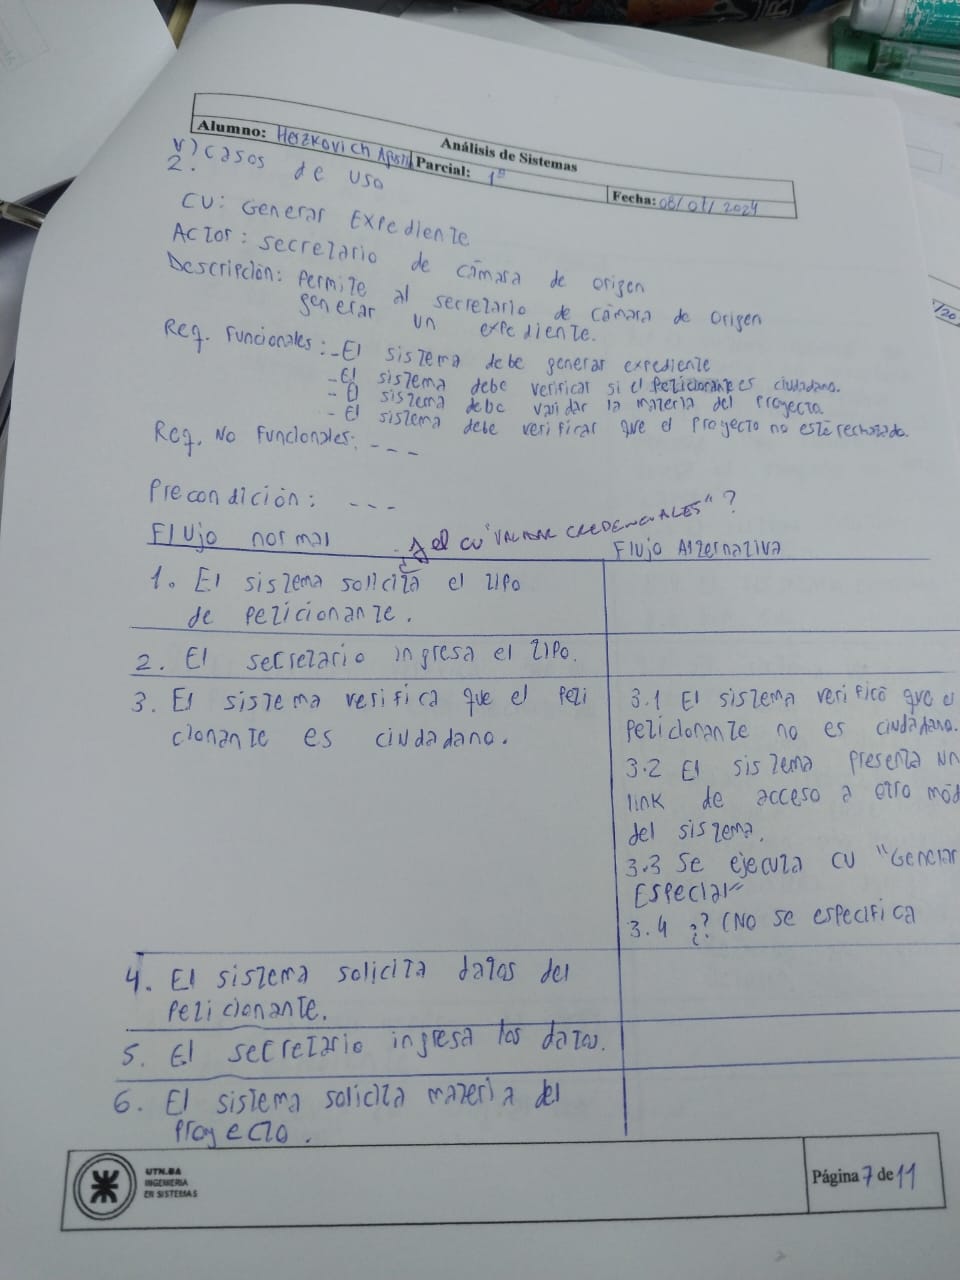 Análisis de Sistemas
Alumno: Herzkovich Agustí
Parcial: 1º
Fecha: 08/07/2024
V) Casos de uso
2.
CU: Generar Expediente
Actor: secretario de cámara de origen
Descripción: Permite al secretario de cámara de origen
generar un expediente.
Req. Funcionales: - El sistema debe generar expediente
- El sistema debe verificar si el peticionante es ciudadano.
- El sistema debe validar la materia del proyecto.
- El sistema debe verificar que el proyecto no esté rechazado.
Req. No Funcionales: ---
Precondición: ---
Y el CU "VALIDAR CREDENCIALES"?
Flujo normal
Flujo Alternativa
1. El sistema solicita el tipo
de peticionante.
2. El secretario ingresa el tipo.
3. El sistema verifica que el peti
cionante es ciudadano.
3.1 El sistema verificó que e
peticionante no es ciudadano.
3.2 El sistema presenta un
link de acceso a otro mód
del sistema.
3.3 Se ejecuta CU "Generar
Especial"
3.4 ¿? (No se especifica
4. El sistema solicita datos del
peticionante.
5. El secretario ingresa los datos.
6. El sistema solicita materia del
proyecto.
UTN.BA
INGENIERIA
EN SISTEMAS
Página 7 de 11